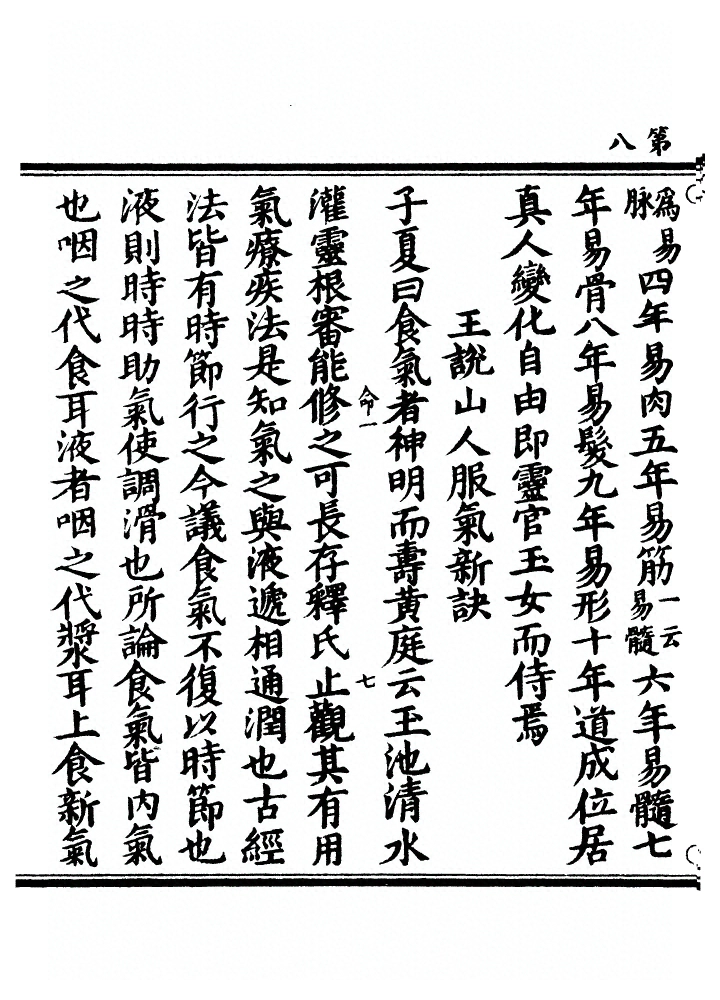 第八
爲易脉四年易肉五年易筋一云易髓六年易髓七
年易骨八年易髮九年易形十年道成位居
真人變化自由即靈官玉女而侍焉
王說山人服氣新訣
子夏曰食氣者神明而壽黃庭云玉池清水
灌靈根審能修之可長存釋氏止觀其有用
命一
七
氣療疾法是知氣之與液遞相通潤也古經
法皆有時節行之今議食氣不復以時節也
液則時時助氣使調滑也所論食氣皆內氣
也咽之代食耳液者咽之代漿耳上食新氣